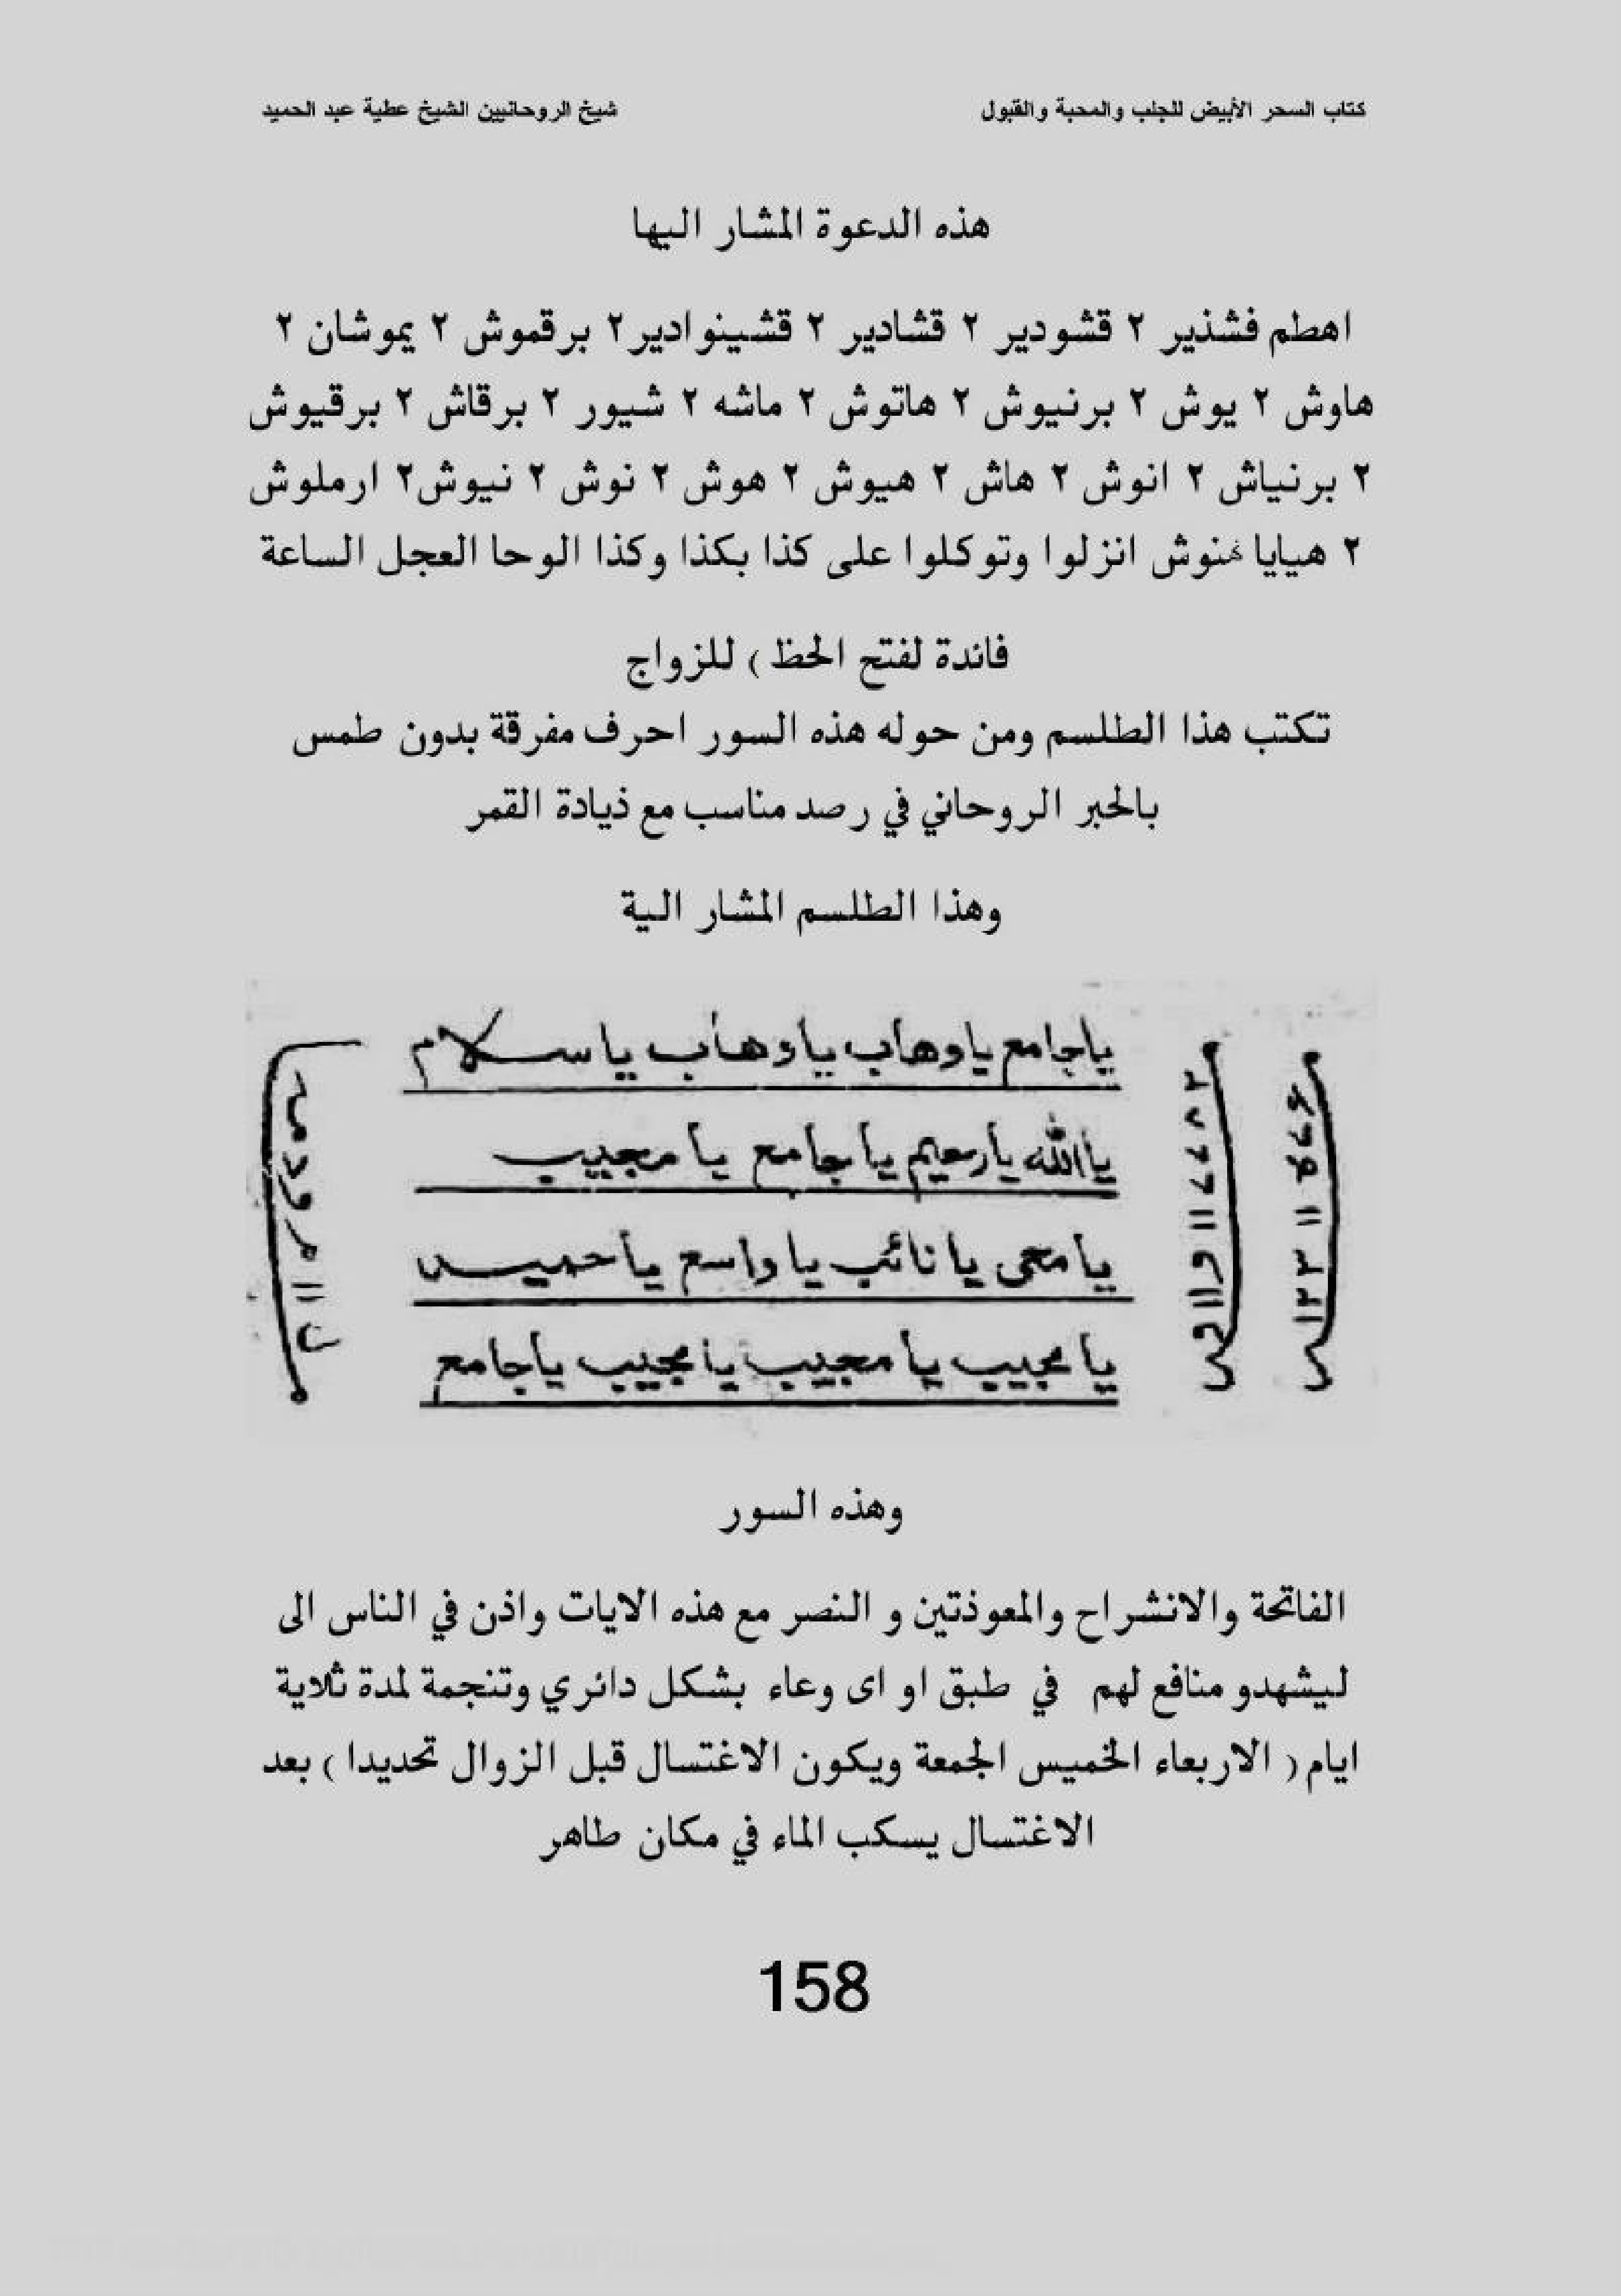 كتاب السحر الأبيض للجلب والمحبة والقبول
شيخ الروحانيين الشيخ عطية عبد الحميد
هذه الدعوة المشار اليها
اهطم فشذير ٢ قشودير ٢ قشادير ٢ قشينوادير٢ برقموش ٢ يموشان ٢
هاوش ٢ يوش ٢ برنيوش ٢ هاتوش ٢ ماشه ٢ شيور ٢ برقاش ٢ برقيوش
٢ برنياش ٢ انوش ٢ هاش ٢ هيوش ٢ هوش ٢ نوش ٢ نيوش٢ ارملوش
٢ هيايا انزلوا وتوكلوا على كذا بكذا وكذا الوحا العجل الساعة
فائدة لفتح الحظ ) للزواج
تكتب هذا الطلسم ومن حوله هذه السور احرف مفرقة بدون طمس
بالحبر الروحاني في رصد مناسب مع ذيادة القمر
وهذا الطلسم المشار الية
ياجامع ياوهاب ياوهاب ياسلام
ياالله يارحيم ياجامع يا مجيب
يا محى يا نائب يا واسع ياحميد
يا مجيب يا مجيب يا مجيب ياجامع
وهذه السور
الفاتحة والانشراح والمعوذتين و النصر مع هذه الايات واذن في الناس الى
ليشهدو منافع لهم في طبق او اى وعاء بشكل دائري وتنجمة لمدة ثلاية
ايام ( الاربعاء الخميس الجمعة ويكون الاغتسال قبل الزوال تحديدا ) بعد
الاغتسال يسكب الماء في مكان طاهر
158